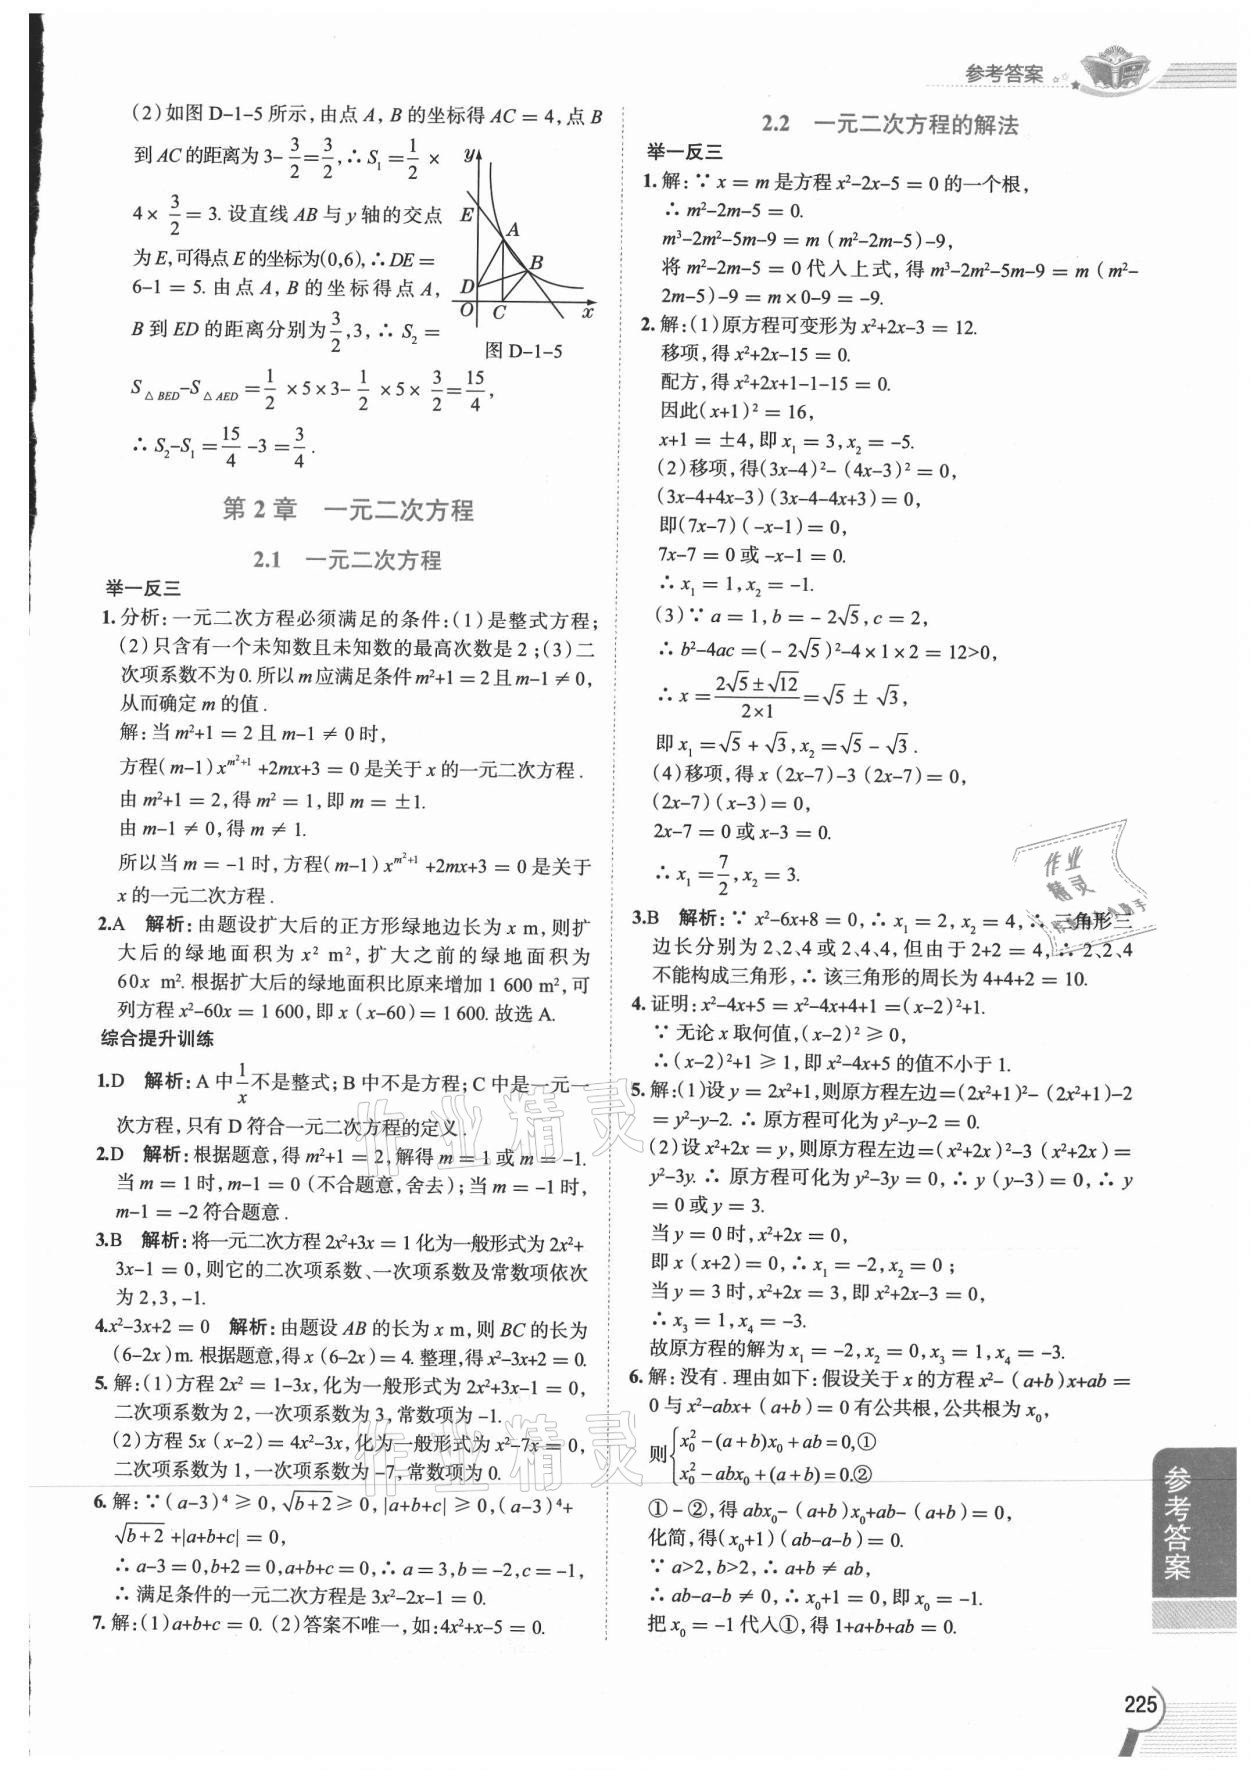 参考答案
(2)如图 D-1-5 所示，由点 A，B 的坐标得 AC = 4，点 B
到 AC 的距离为 3-3/2=3/2，∴ S₁=1/2 ×
4× 3/2 = 3. 设直线 AB 与 y 轴的交点
为 E，可得点 E 的坐标为(0,6)，∴ DE =
6-1 = 5. 由点 A，B 的坐标得点 A，
B 到 ED 的距离分别为3/2，3，∴ S₂ =
y
E
A
B
D
O
C
x
图 D-1-5
S△BED-S△AED =1/2 ×5×3-1/2 ×5× 3/2=15/4，
∴ S₂-S₁ =15/4 -3 =3/4 .
第 2 章　一元二次方程
2.1　一元二次方程
举一反三
1. 分析：一元二次方程必须满足的条件：(1)是整式方程；
(2)只含有一个未知数且未知数的最高次数是 2；(3)二
次项系数不为 0. 所以 m 应满足条件 m²+1 = 2 且 m-1 ≠ 0，
从而确定 m 的值.
解：当 m²+1 = 2 且 m-1 ≠ 0 时，
方程(m-1)x^(m²+1) +2mx+3 = 0 是关于 x 的一元二次方程.
由 m²+1 = 2，得 m² = 1，即 m = ±1.
由 m-1 ≠ 0，得 m ≠ 1.
所以当 m = -1 时，方程(m-1) x^(m²+1) +2mx+3 = 0 是关于
x 的一元二次方程.
2.A　解析：由题设扩大后的正方形绿地边长为 x m，则扩
大后的绿地面积为 x² m²，扩大之前的绿地面积为
60x m². 根据扩大后的绿地面积比原来增加 1 600 m²，可
列方程 x²-60x = 1 600，即 x (x-60) = 1 600. 故选 A.
综合提升训练
1.D　解析：A 中1/x不是整式；B 中不是方程；C 中是一元一
次方程，只有 D 符合一元二次方程的定义.
2.D　解析：根据题意，得 m²+1 = 2，解得 m = 1 或 m = -1.
当 m = 1 时，m-1 = 0 (不合题意，舍去)；当 m = -1 时，
m-1 = -2 符合题意.
3.B　解析：将一元二次方程 2x²+3x = 1 化为一般形式为 2x²+
3x-1 = 0，则它的二次项系数、一次项系数及常数项依次
为 2,3,-1.
4.x²-3x+2 = 0　解析：由题设 AB 的长为 x m，则 BC 的长为
(6-2x)m. 根据题意，得 x (6-2x) = 4. 整理，得 x²-3x+2 = 0.
5. 解：(1)方程 2x² = 1-3x，化为一般形式为 2x²+3x-1 = 0，
二次项系数为 2，一次项系数为 3，常数项为 -1.
(2)方程 5x (x-2) = 4x²-3x，化为一般形式为 x²-7x = 0，
二次项系数为 1，一次项系数为 -7，常数项为 0.
6. 解：∵ (a-3)⁴ ≥ 0，√(b+2) ≥ 0，|a+b+c| ≥ 0，(a-3)⁴+
√(b+2) +|a+b+c| = 0，
∴ a-3 = 0,b+2 = 0,a+b+c = 0，∴ a = 3,b = -2,c = -1，
∴ 满足条件的一元二次方程是 3x²-2x-1 = 0.
7. 解：(1)a+b+c = 0. (2)答案不唯一，如：4x²+x-5 = 0.
2.2　一元二次方程的解法
举一反三
1. 解：∵ x = m 是方程 x²-2x-5 = 0 的一个根，
∴ m²-2m-5 = 0.
m³-2m²-5m-9 = m (m²-2m-5)-9，
将 m²-2m-5 = 0 代入上式，得 m³-2m²-5m-9 = m (m²-
2m-5)-9 = m×0-9 = -9.
2. 解：(1)原方程可变形为 x²+2x-3 = 12.
移项，得 x²+2x-15 = 0.
配方，得 x²+2x+1-1-15 = 0.
因此(x+1)² = 16，
x+1 = ±4，即 x₁ = 3，x₂ = -5.
(2)移项，得(3x-4)²-(4x-3)² = 0，
(3x-4+4x-3)(3x-4-4x+3) = 0，
即(7x-7)(-x-1) = 0，
7x-7 = 0 或 -x-1 = 0.
∴ x₁ = 1，x₂ = -1.
(3)∵ a = 1，b = - 2√5，c = 2，
∴ b²-4ac =(- 2√5)²-4×1×2 = 12>0，
∴ x =(2√5±√12)/(2×1)=√5 ± √3，
即 x₁ =√5 + √3，x₂ =√5 - √3 .
(4)移项，得 x (2x-7)-3 (2x-7) = 0，
(2x-7)(x-3) = 0，
2x-7 = 0 或 x-3 = 0.
∴ x₁ =7/2，x₂ = 3.
3.B　解析：∵ x²-6x+8 = 0，∴ x₁ = 2，x₂ = 4，∴ 三角形三
边长分别为 2、2、4 或 2、4、4，但由于 2+2 = 4，∴ 2、2、4
不能构成三角形，∴ 该三角形的周长为 4+4+2 = 10.
4. 证明：x²-4x+5 = x²-4x+4+1 =(x-2)²+1.
∵ 无论 x 取何值，(x-2)² ≥ 0，
∴ (x-2)²+1 ≥ 1，即 x²-4x+5 的值不小于 1.
5. 解：(1)设 y = 2x²+1，则原方程左边=(2x²+1)²-(2x²+1)-2
= y²-y-2. ∴ 原方程可化为 y²-y-2 = 0.
(2)设 x²+2x = y，则原方程左边=(x²+2x)²-3 (x²+2x) =
y²-3y. ∴ 原方程可化为 y²-3y = 0，∴ y (y-3) = 0，∴ y
= 0 或 y = 3.
当 y = 0 时，x²+2x = 0，
即 x (x+2) = 0，∴ x₁ = -2，x₂ = 0；
当 y = 3 时，x²+2x = 3，即 x²+2x-3 = 0，
∴ x₃ = 1，x₄ = -3.
故原方程的解为 x₁ = -2，x₂ = 0，x₃ = 1，x₄ = -3.
6. 解：没有. 理由如下：假设关于 x 的方程 x²-(a+b)x+ab =
0 与 x²-abx+(a+b) = 0 有公共根，公共根为 x₀，
则{x₀²-(a+b)x₀+ab=0,①
x₀²-abx₀+(a+b)=0.②
①-②，得 abx₀-(a+b)x₀+ab-(a+b) = 0，
化简，得(x₀+1)(ab-a-b) = 0.
∵ a>2，b>2，∴ a+b ≠ ab，
∴ ab-a-b ≠ 0，∴ x₀+1 = 0，即 x₀ = -1.
把 x₀ = -1 代入①，得 1+a+b+ab = 0.
参考答案
225
作业精灵
作业精灵
作业
精灵